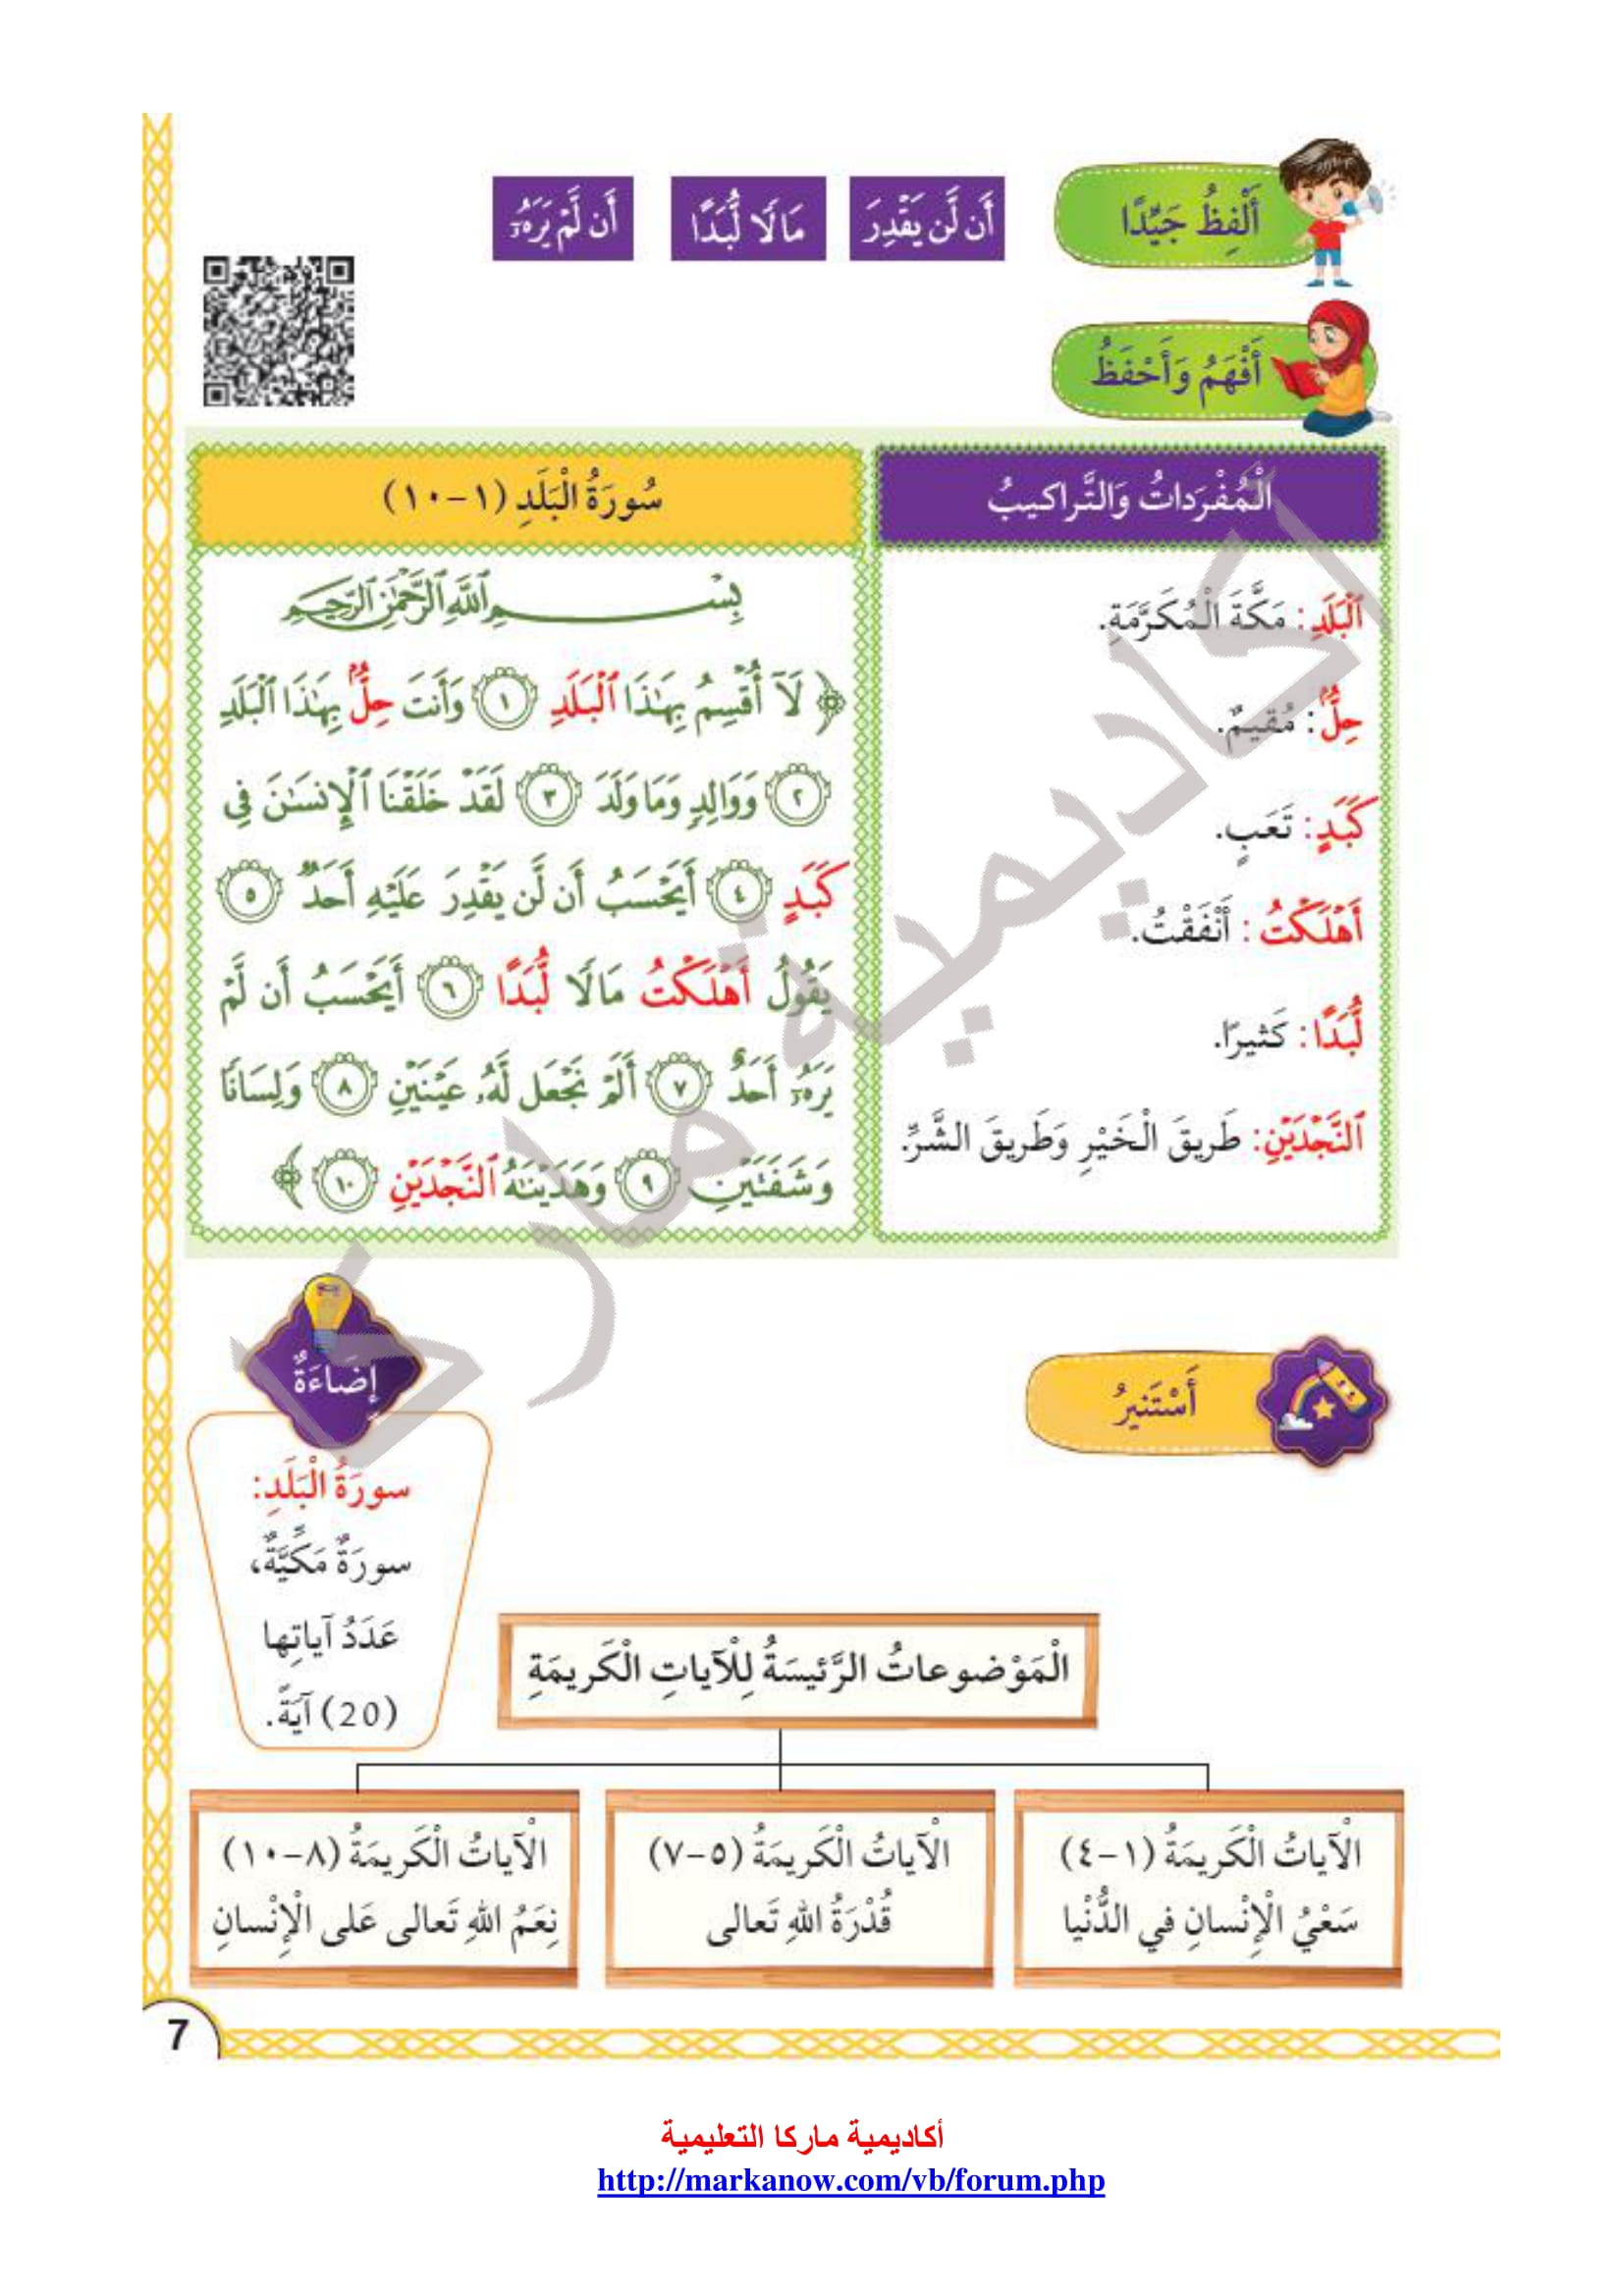 أَلْفِظُ جَيِّدًا
أَن لَّن يَقْدِرَ
مَالًا لُّبَدًا
أَن لَّمْ يَرَهُۥٓ
أَفْهَمُ وَأَحْفَظُ
الْمُفْرَداتُ وَالتَّراكيبُ
ٱلْبَلَدِ: مَكَّةَ الْمُكَرَّمَةِ.
حِلٌّۢ: مُقيمٌ.
كَبَدٍ: تَعَبٍ.
أَهْلَكْتُ: أَنْفَقْتُ.
لُّبَدًا: كَثيرًا.
ٱلنَّجْدَيْنِ: طَريقَ الْخَيْرِ وَطَريقَ الشَّرِّ.
سُورَةُ الْبَلَدِ (١-١٠)
بِسْمِ ٱللَّهِ ٱلرَّحْمَٰنِ ٱلرَّحِيمِ
﴿ لَآ أُقْسِمُ بِهَٰذَا ٱلْبَلَدِ ١ وَأَنتَ حِلٌّۢ بِهَٰذَا ٱلْبَلَدِ
٢ وَوَالِدٍ وَمَا وَلَدَ ٣ لَقَدْ خَلَقْنَا ٱلْإِنسَٰنَ فِى
كَبَدٍ ٤ أَيَحْسَبُ أَن لَّن يَقْدِرَ عَلَيْهِ أَحَدٌ ٥
يَقُولُ أَهْلَكْتُ مَالًا لُّبَدًا ٦ أَيَحْسَبُ أَن لَّمْ
يَرَهُۥٓ أَحَدٌ ٧ أَلَمْ نَجْعَل لَّهُۥ عَيْنَيْنِ ٨ وَلِسَانًا
وَشَفَتَيْنِ ٩ وَهَدَيْنَٰهُ ٱلنَّجْدَيْنِ ١٠ ﴾
أَسْتَنيرُ
إِضَاءَةٌ
سورَةُ الْبَلَدِ:
سورَةٌ مَكِّيَّةٌ،
عَدَدُ آياتِها
(20) آيَةً.
الْمَوْضوعاتُ الرَّئيسَةُ لِلْآياتِ الْكَريمَةِ
الْآياتُ الْكَريمَةُ (١-٤)
سَعْيُ الْإِنْسانِ في الدُّنْيا
الْآياتُ الْكَريمَةُ (٥-٧)
قُدْرَةُ اللهِ تَعالى
الْآياتُ الْكَريمَةُ (٨-١٠)
نِعَمُ اللهِ تَعالى عَلى الْإِنْسانِ
7
أكاديمية ماركا
أكاديمية ماركا التعليمية
http://markanow.com/vb/forum.php